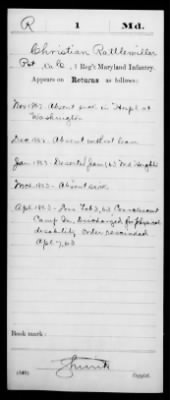 R 1 Md.
Christian Rattleviller
Pvt, Co. C, 1 Reg't Maryland Infantry.
Appears on Returns as follows:
Nov 1862 Absent sick in Hosp'l at
Washington
Dec 1862 Absent without leave
Jan 1863 Deserted Jan 1/63 Md Heights
Mch 1863 Absent sick
Apl 1863 Feb 3, 63 Convalescent
Camp Discharged for physical
disability order rescinded
Apl 7, 63
Book mark:
Copyist.